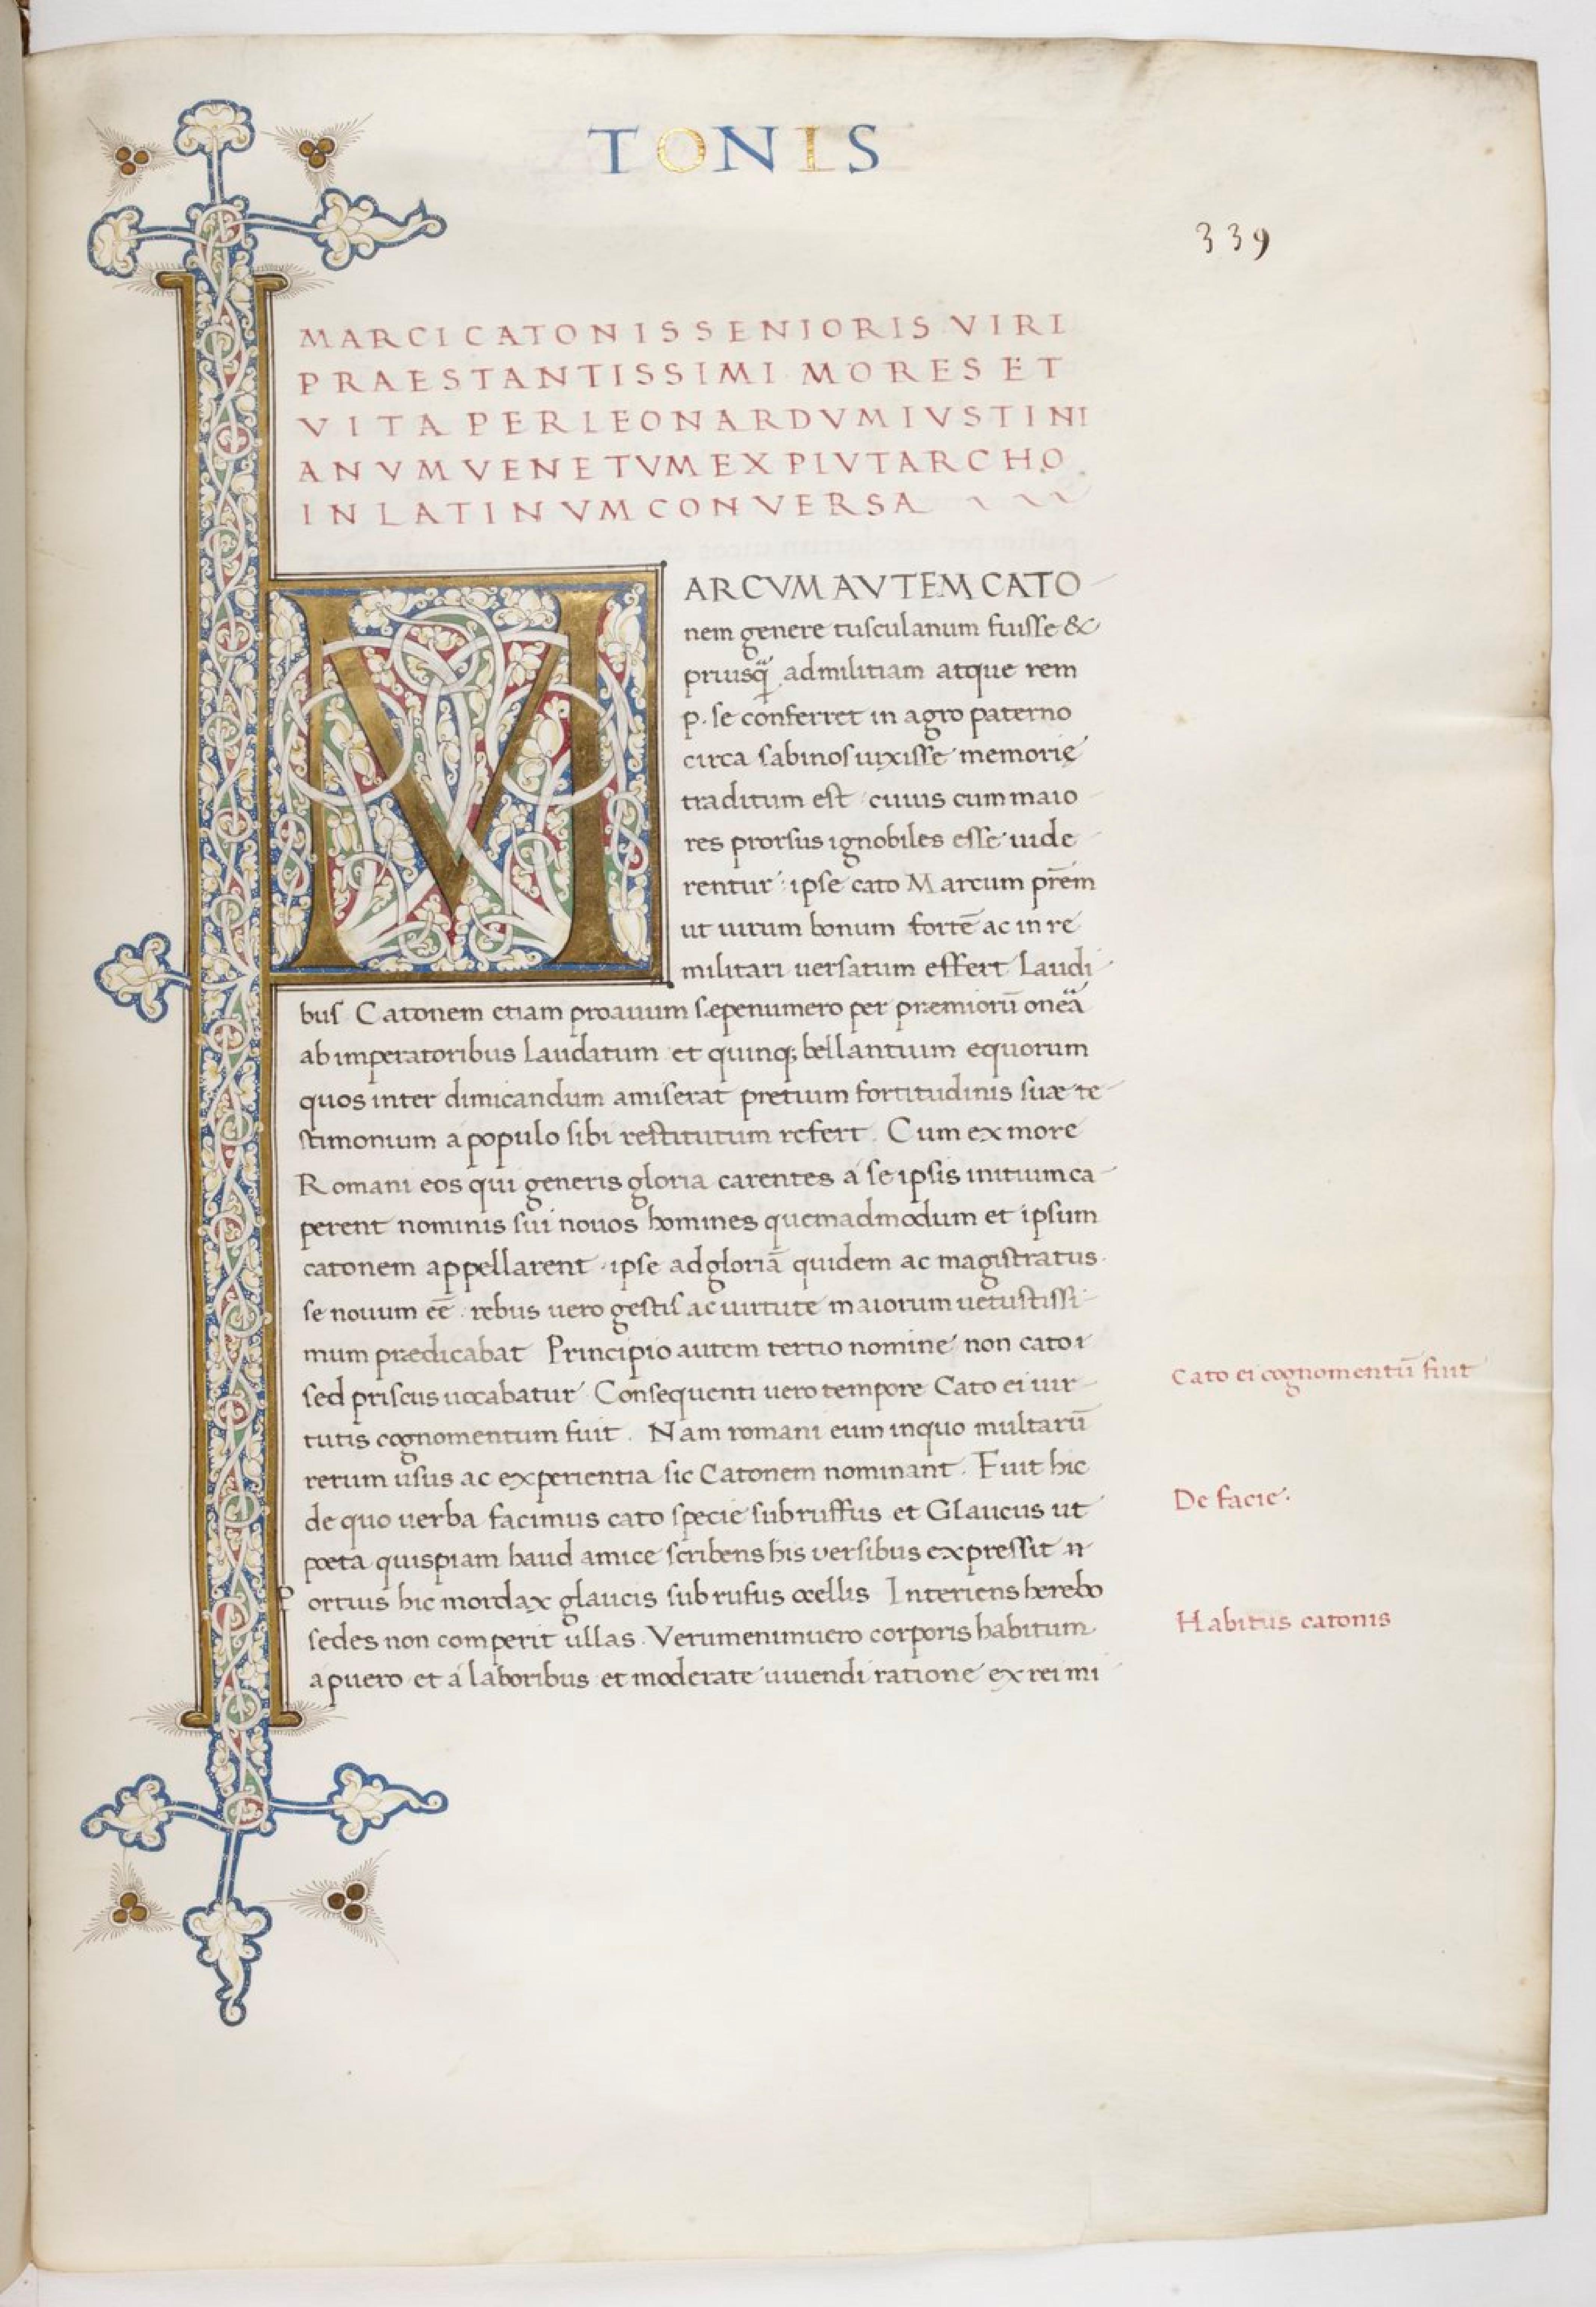 TONIS
339
MARCI CATONIS SENIORIS VIRI
PRAESTANTISSIMI MORES ET
VITA PER LEONARDVM IVSTINI
ANVM VENETVM EX PLVTARCHO
IN LATINVM CONVERSA
MARCVM AVTEM CATO
nem genere tusculanum fuisse &
priusq̃ ad militiam atque rem
p. se conferret in agro paterno
circa sabinos uixisse memorię
traditum est cuius cum maio
res prorsus ignobiles esse uide
rentur: ipse cato Marcum prēm
ut uirum bonum fortē ac in re
militari uersatum effert Laudi
bus Catonem etiam proauum sæpenumero per præmiorū
ab imperatoribus Laudatum et quinq; bellantium equorum
quos inter dimicandum amiserat pretium fortitudinis suæ te
stimonium a populo sibi restitutum refert. Cum ex more
Romani eos qui generis gloria carentes á se ipsis initium ca
perent nominis sui nouos homines quemadmodum et ipsum
catonem appellarent. ipse ad gloriā quidem ac magistratus
se nouum eē. rebus uero gestis ac uirtute maiorum uetustissi
mum prædicabat Principio autem tertio nomine non cato
sed priscus uocabatur Consequenti uero tempore Cato ei uir
tutis cognomentum fuit. Nam romani eum in quo multarū
rerum usus ac experientia sic Catonem nominant. Fuit hic
de quo uerba facimus cato specie subruffus et Glaucus ut
poeta quispiam haud amice scribens his versibus expressit
Portius hic mordax glaucis subrufus ocellis Interiens herebo
sedes non comperit ullas. Verumenimuero corporis habitum
a puero et á laboribus et moderate uiuendi ratione ex rei mi
Cato ei cognomentū fuit
De facie.
Habitus catonis